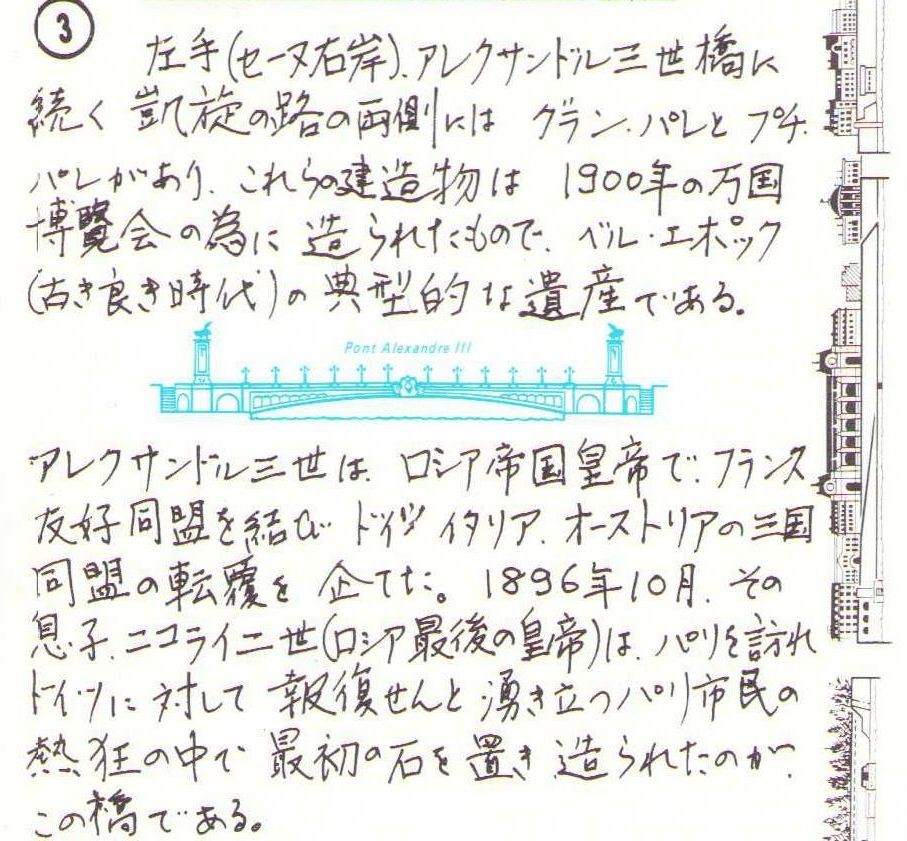 3
左手(セーヌ右岸)、アレクサンドル三世橋に
続く 凱旋の路の両側には グラン・パレと プチ・
パレがあり、これらの建造物は 1900年の万国
博覧会の為に 造られたもので、ベル・エポック
(古き良き時代)の 典型的な遺産である。
Pont Alexandre III
アレクサンドル三世は、ロシア帝国皇帝で、フランス
友好同盟を結び ドイツ イタリア、オーストリアの三国
同盟の転覆を 企てた。1896年10月、その
息子、ニコライ二世(ロシア最後の皇帝)は、パリを訪れ
ドイツに対して 報復せんと 湧き立つパリ市民の
熱狂の中で 最初の石を置き 造られたのが、
この橋である。